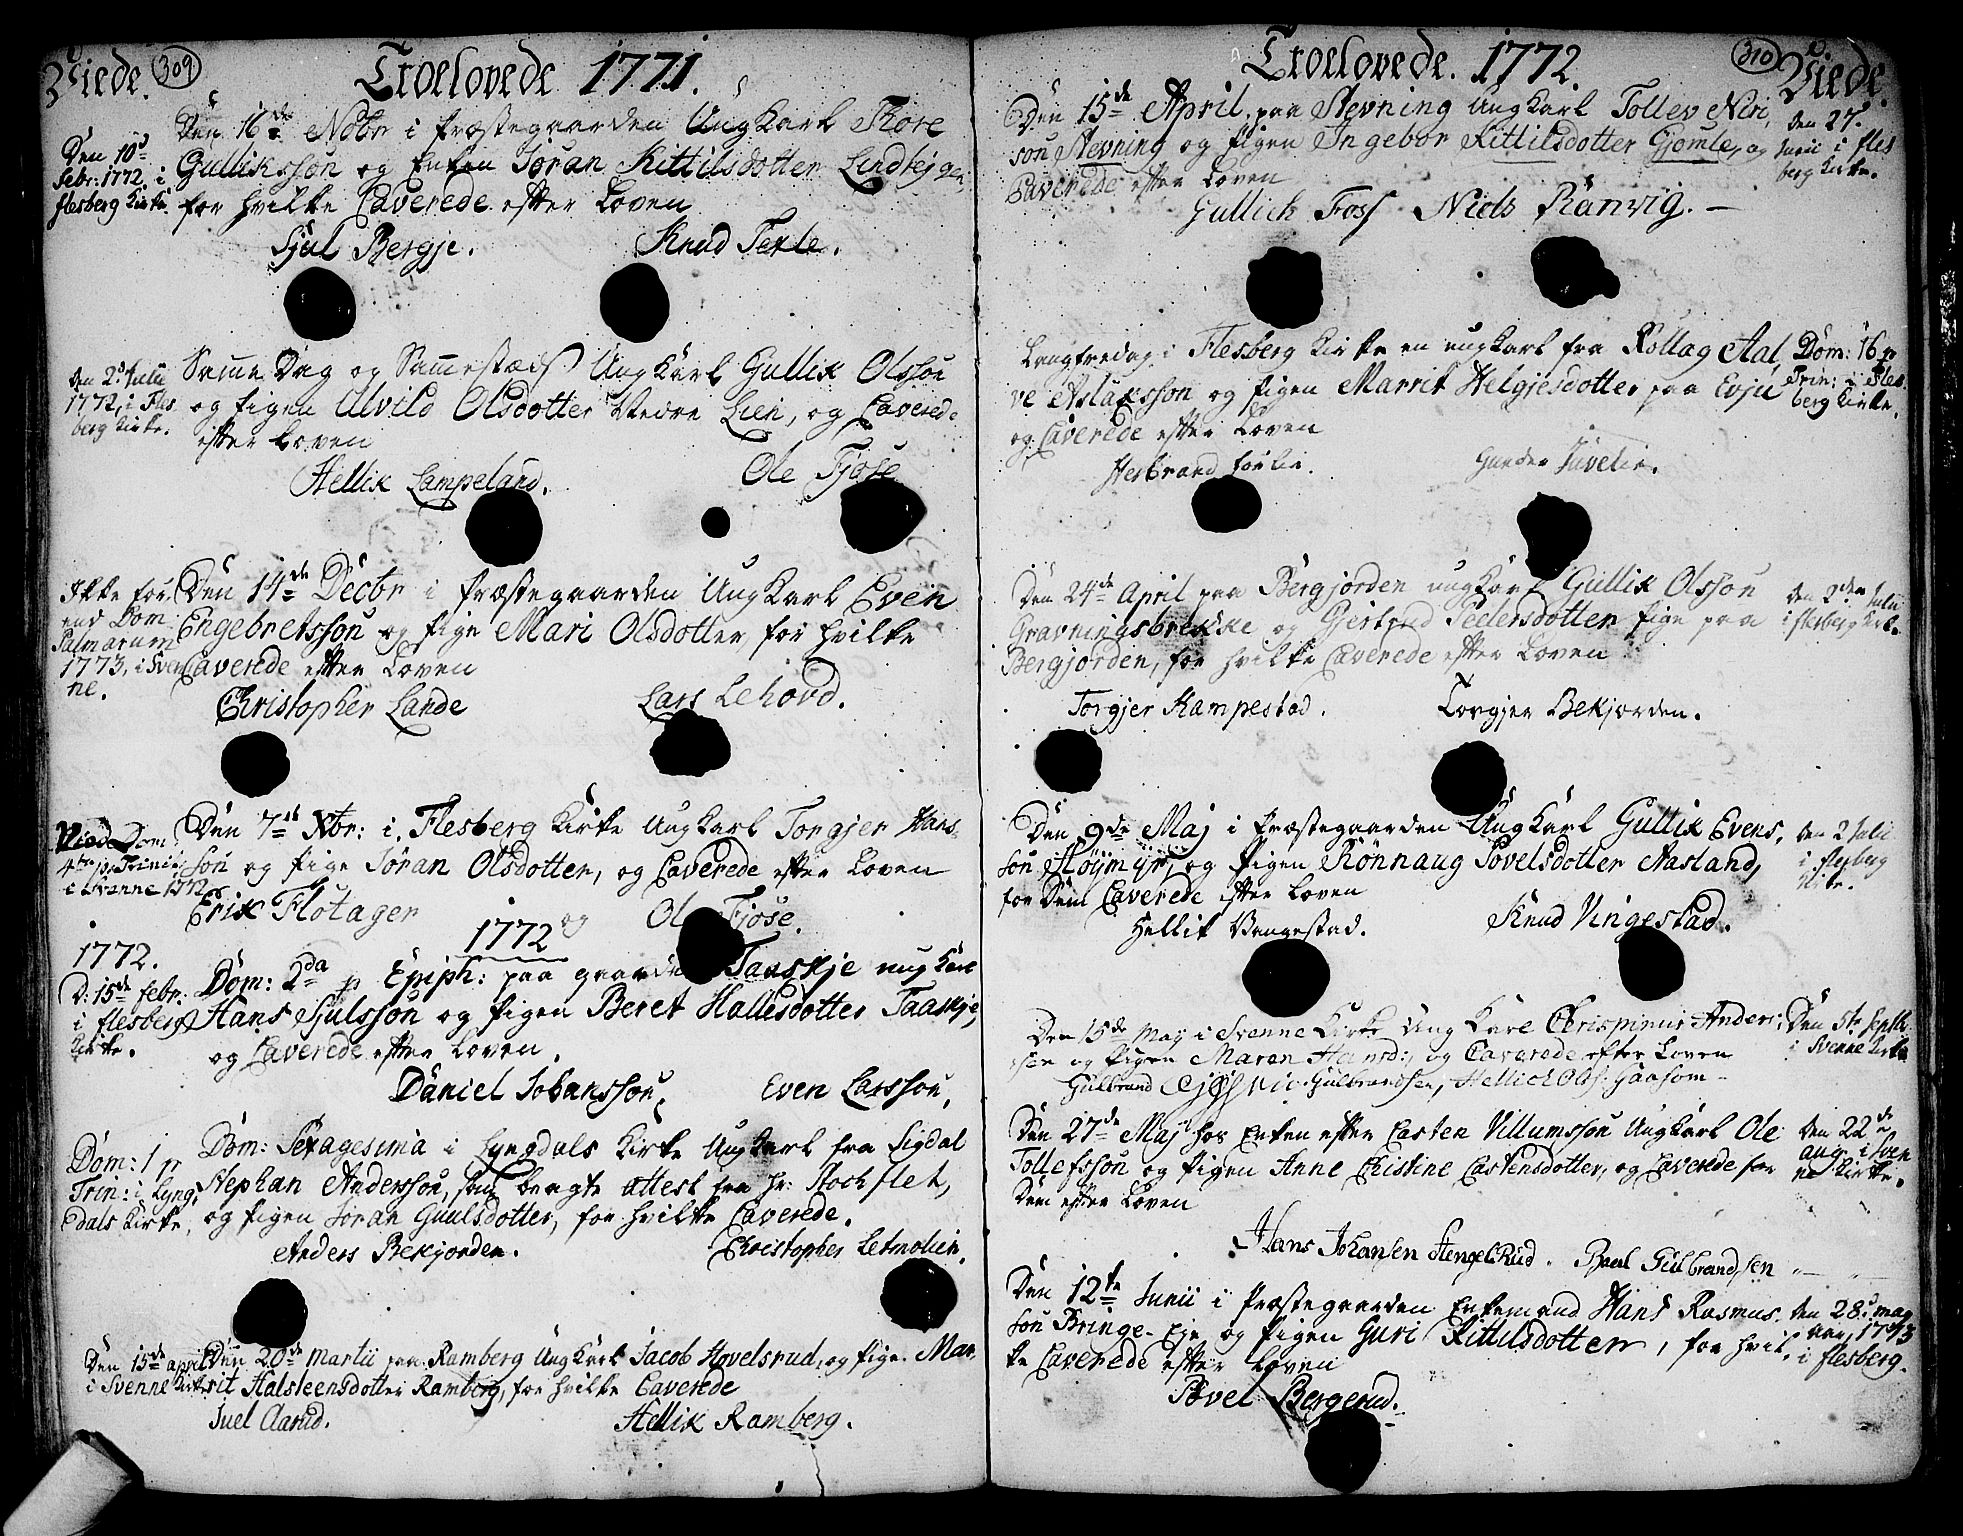 Viede. 309 Troelovede 1771.
Den 16de Nobr i Præstegaarden Ungkarl Tore
Gulliksson og Enken Jøran Kittilsdotter Lindtejgen,
for hvilke Caverede efter Loven
Den 10d
Febr: 1772, i
Flesberg Kirke.
Sjul Bergje. Knud Texle.
Samme Dag og Sammestæds Ungkarl Gullik Olsson
og Pigen Alvild Olsdotter Vedre Lien, og Caverede
efter Loven
den 2d Julii
1772, i Fles
berg Kirke.
Hellik Lampeland. Ole Fjøse
Den 14de Decbr i Præstegaarden Ungkarl Even
Engebretsson og Pige Mari Olsdotter for hvilke
Caverede efter Loven
Ikke før
end Dom:
Palmarum
1773, i Sven
ne.
Christopher Lande Lars Lehovd.
Den 7de Xbr: i Flesberg Kirke Ungkarl Torgjer Hans-
son og Pige Jøran Olsdotter, og Caverede efter Loven
Viede Dom:
4te p. Trinit:
i Svenne 1772
Erik Flotager og Ole Fjøse.
1772
1772.
Dom: 2da p Epiph: paa gaarden Taaskje ungkarl
Hans Sjulsson og Pigen Beret Hallesdotter Taaskje,
og Caverede efter Loven.
D: 15de Febr:
i Flesberg
Kirke.
Daniel Johansson, Even Larsson,
Dom: Sexagesima i Lyngdals Kirke Ungkarl fra Sigdal
Stephan Andersson, som bragte attest fra Hr: Stockflet,
og Pigen Jøran Guulsdotter, for hvilke Caverede.
Dom: 1 p
Trin: i Lyng,
dals Kirke,
Anders Bekjorden. Christopher Letmolien.
Den 20de Martii paa Ramberg Ungkarl Jacob Hovelsrud, og Pige Mar,
rit Halsteensdotter Ramberg, for hvilke Caverede
Den 15de april
i Svenne Kirke
Juel Aarud. Hellik Ramberg.
Troelovede. 1772. 310 Viede.
Den 15de April, paa Stevning Ungkarl Tollev Niri,
son Stevning og Pigen Ingebor Kittilsdotter Gjomle, og
Caverede efter Loven
den 27.
Junii i Fles
berg Kirke.
Gullich Foss Niels Ranvig. —
Langfredag i Flesberg Kirke en ungkarl fra Rollag Aal,
ve Aslaksson og Pigen Marrit Helgjesdotter paa Evju
og Caverede efter Loven
Dom: 16 p
Trin: i Fles,
berg Kirke.
Herbrand Førlie. Gunder Juvelie.
Den 24de April paa Bergjorden ungkarl Gullik Olsson
Gravningsbrekke og Gjertrud Peedersdotter Pige paa
Bergjorden, for hvilke Caverede efter Loven
den 2den Julii
i Flesberg Kirke.
Torgjer Kampestad. Torgjer Bekjorden.
Den 9de Maj i Præstegaarden Ungkarl Gullik Evens,
son Høymyr, og Pigen Rønnaug Povelsdotter Aasland,
for Dem Caverede efter Loven
den 2 Julii
i Flesberg
Kirke.
Hellik Vangestad. Knud Vingestad.
Den 15de May i Svenne Kirke Ung Karl Chrispinus Anders,
sen og Pigen Maren Hansd:, og Caverede efter Loven
Den 5te Septb
i Svenne Kirke
Gulbrand Gulbrandsen, Hellich Ols: Gaasom-
Den 27de Maj hos Enken efter Casten Villumsson Ungkarl Ole
Tollefsson og Pigen Anne Christine Castensdotter, og Caverede for
Dem efter Loven
den 22de
aug. i Sven
ne Kirke.
Hans Johansen Stengelrud. Paul Gulbrandsen
Den 12te Junii i Præstegaarden Enkemand Hans Rasmus,
son Bringe-Eje og Pigen Guri Kittilsdotter, for hvil,
ke Caverede efter Loven
den 28d
1773
i Flesberg.
Povel Bergerud.